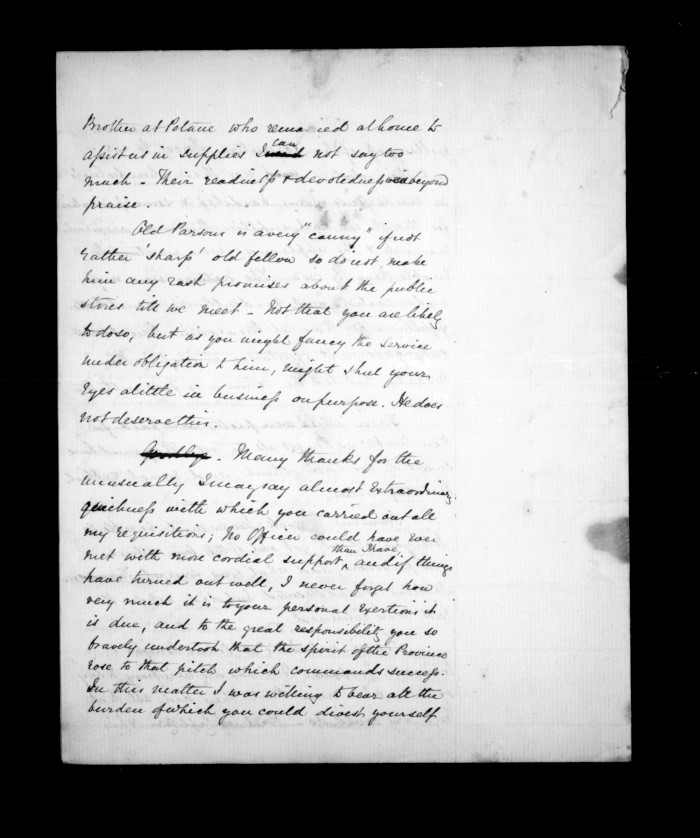 Brother at Petane who remained at home to
assist us in supplies I can not say too
much – Their readiness & devotedness was beyond
praise.
Old Parsons is a very "canny" if not
rather 'sharp' old fellow so do not make
him any rash promises about the public
stores till we meet – Not that you are likely
to do so, but as you might fancy the service
under obligation to him, might shut your
Eyes a little in business on purpose. He does
not deserve this.
Goodbye. Many thanks for the
unusually I may say almost Extraordinary
quickness with which you carried out all
my requisitions; No Officer could have ever
met with more cordial support than I have, and if things
have turned out well, I never forget how
very much it is to your personal Exertions it
is due, and to the great responsibility you so
bravely undertook that the spirit of the Province
rose to that pitch which commands success.
In this matter I was willing to bear all the
burden of which you could divest yourself